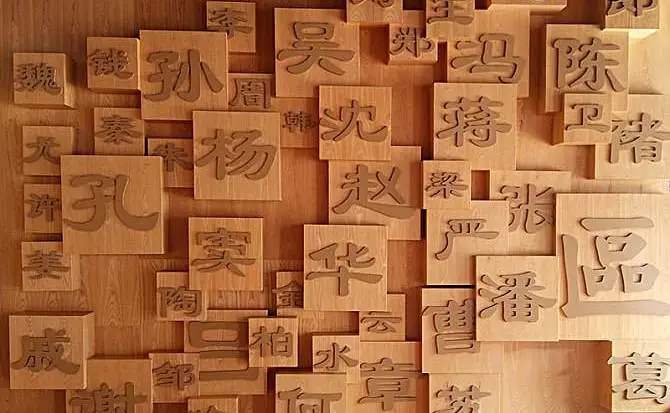 李
吴
郑
冯
陈
魏
钱
孙
周
韩
沈
蒋
卫
褚
秦
尤
朱
杨
孔
许
赵
梁
张
严
區
姜
窦
华
陶
金
潘
云
曹
戚
柏
水
邹
章
谢
何
苏
葛